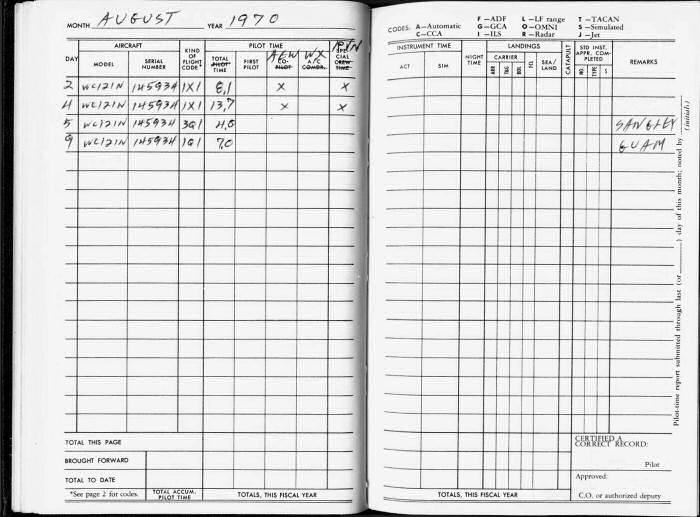 MONTH AUGUST YEAR 1970
AIRCRAFT PILOT TIME
DAY MODEL SERIAL NUMBER KIND OF FLIGHT CODE* TOTAL PILOT TIME FIRST PILOT AEW CO-PILOT WX A/C COMDR. SPE-CIAL CREW TIME
2 WC121N 145934 1X1 8,1 X X
4 WC121N 145934 1X1 13,7 X X
5 WC121N 145934 3Q1 4.0
9 WC121N 145934 1Q1 7.0
TOTAL THIS PAGE
BROUGHT FORWARD
TOTAL TO DATE
*See page 2 for codes. TOTAL ACCUM. PILOT TIME TOTALS, THIS FISCAL YEAR
CODES: A—Automatic F—ADF L—LF range T—TACAN
C—CCA G—GCA O—OMNI S—Simulated
I—ILS R—Radar J—Jet
INSTRUMENT TIME NIGHT TIME LANDINGS CATAPULT STD INST. APPR. COM-PLETED REMARKS
ACT SIM CARRIER ARR T&G BOL FCL SEA/LAND NO. TYPE S
SANGLEY
GUAM
Pilot-time report submitted through last (or ) day of this month; noted by (initials)
CERTIFIED A CORRECT RECORD:
Pilot
Approved:
C.O. or authorized deputy
TOTALS, THIS FISCAL YEAR